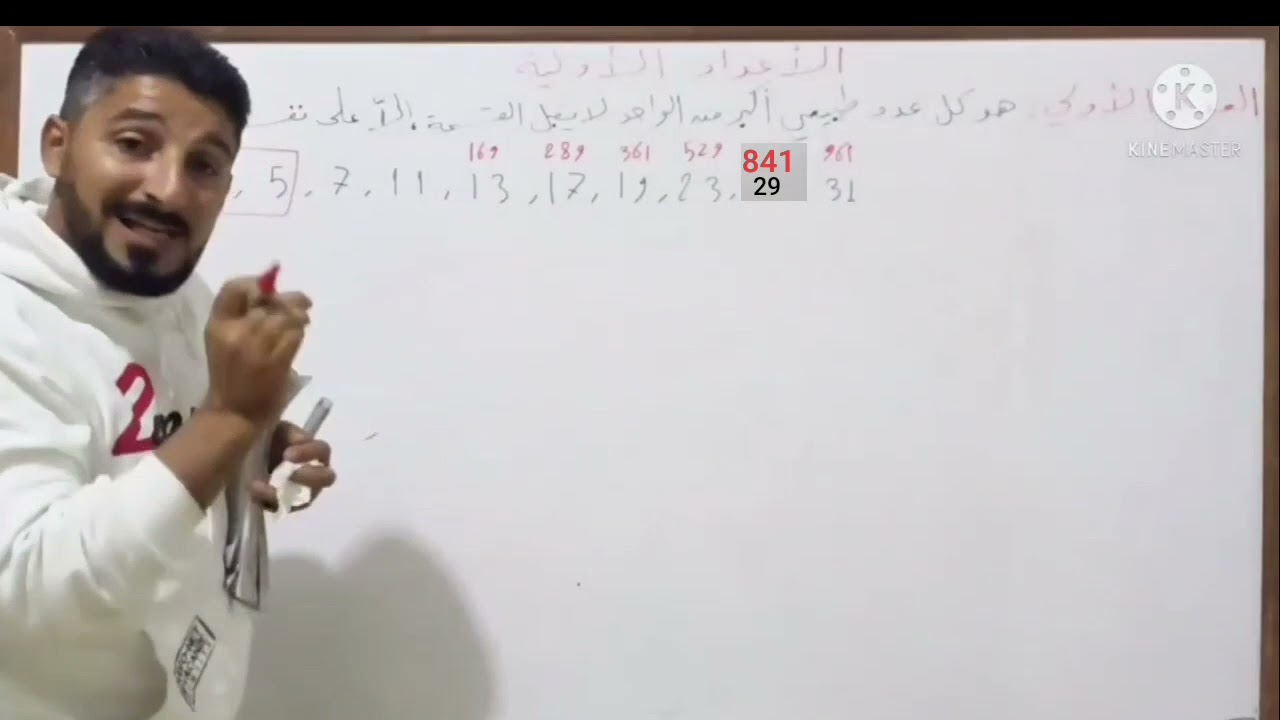 الأعداد الأولية
الأولي : هو كل عدد طبيعي أكبر من الواحد لا يقبل القسمة إلا على
169 289 361 529 841 961
, 5 , 7 , 11 , 13 , 17 , 19 , 23 , 29 31
K
KINEMASTER
2